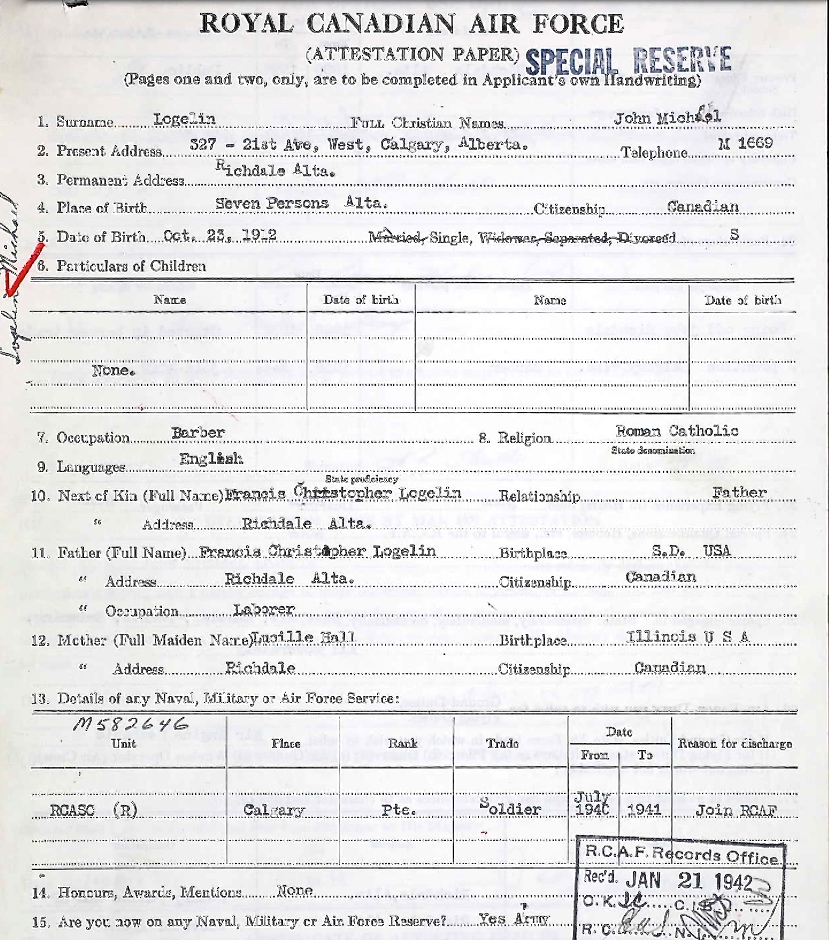 ROYAL CANADIAN AIR FORCE
(ATTESTATION PAPER) SPECIAL RESERVE
(Pages one and two, only, are to be completed in Applicant's own Handwriting)
1. Surname Logelin Full Christian Names John Michael
2. Present Address 327 - 21st Ave, West, Calgary, Alberta. Telephone M 1669
3. Permanent Address Richdale Alta.
4. Place of Birth Seven Persons Alta. Citizenship Canadian
5. Date of Birth Oct. 23, 1912 Married, Single, Widower, Separated, Divorced S
Logelin Michael
6. Particulars of Children
Name Date of birth Name Date of birth
None.
7. Occupation Barber 8. Religion Roman Catholic
State denomination
9. Languages English
State proficiency
10. Next of Kin (Full Name) Francis Christopher Logelin Relationship Father
" Address Richdale Alta.
11. Father (Full Name) Francis Christopher Logelin Birthplace S.D. USA
" Address Richdale Alta. Citizenship Canadian
" Occupation Laborer
12. Mother (Full Maiden Name) Lucille Hall Birthplace Illinois U S A
" Address Richdale Citizenship Canadian
13. Details of any Naval, Military or Air Force Service:
M582646
Unit Place Rank Trade Date Reason for discharge
From To
RCASC (R) Calgary Pte. Soldier July 1940 1941 Join RCAF
R.C.A.F. Records Office
Rec'd. JAN 21 1942
14. Honours, Awards, Mentions None
O.K. C.
15. Are you now on any Naval, Military or Air Force Reserve? Yes Army
R.C.